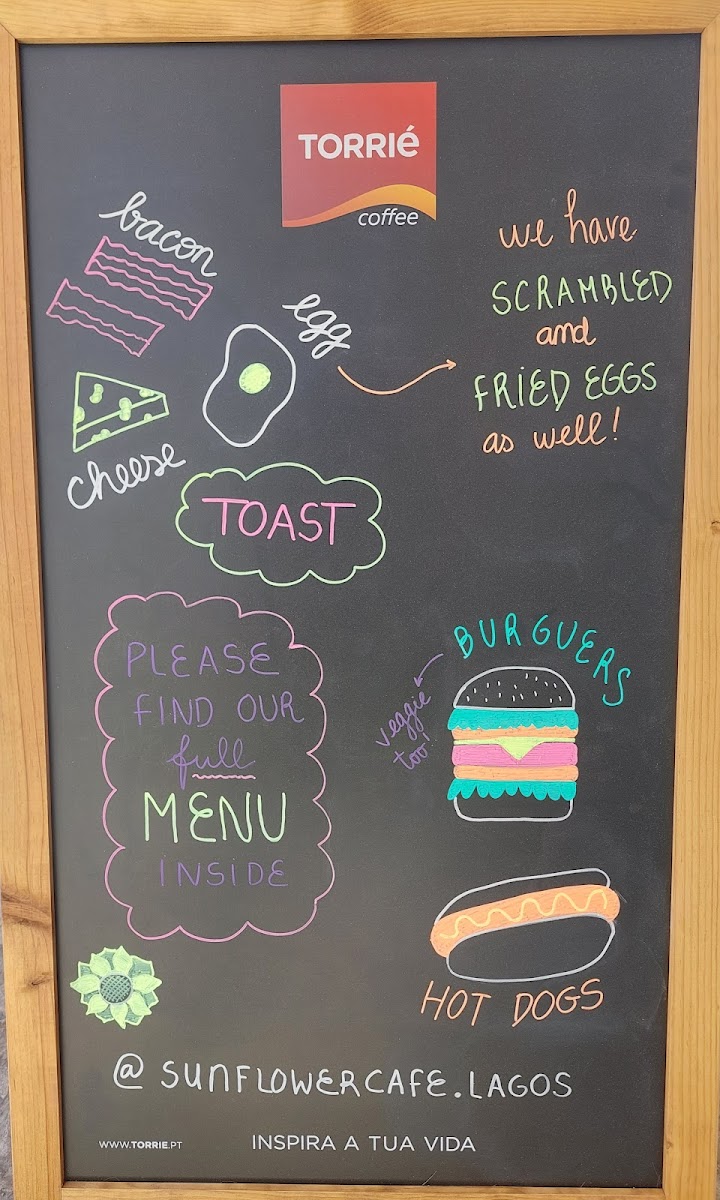 TORRIé
coffee
bacon
egg
cheese
we have
SCRAMBLED
and
FRIED EGGS
as well!
TOAST
PLEASE
FIND OUR
full
MENU
INSIDE
BURGUERS
veggie
too!
HOT DOGS
@ SUNFLOWERCAFE.LAGOS
WWW.TORRIE.PT
INSPIRA A TUA VIDA